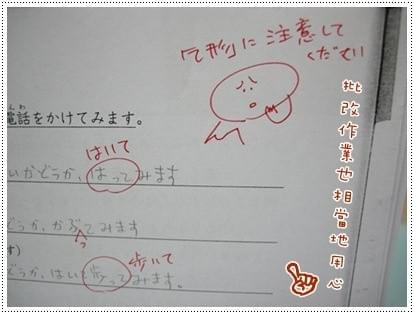 「て形」に注意して
ください
電話をかけてみます。
はいて
いかどうか、はってみます
どうか、かぶてみます
っ
歩いて
どうか、はい歩ってみます。
批改作業也相當地用心